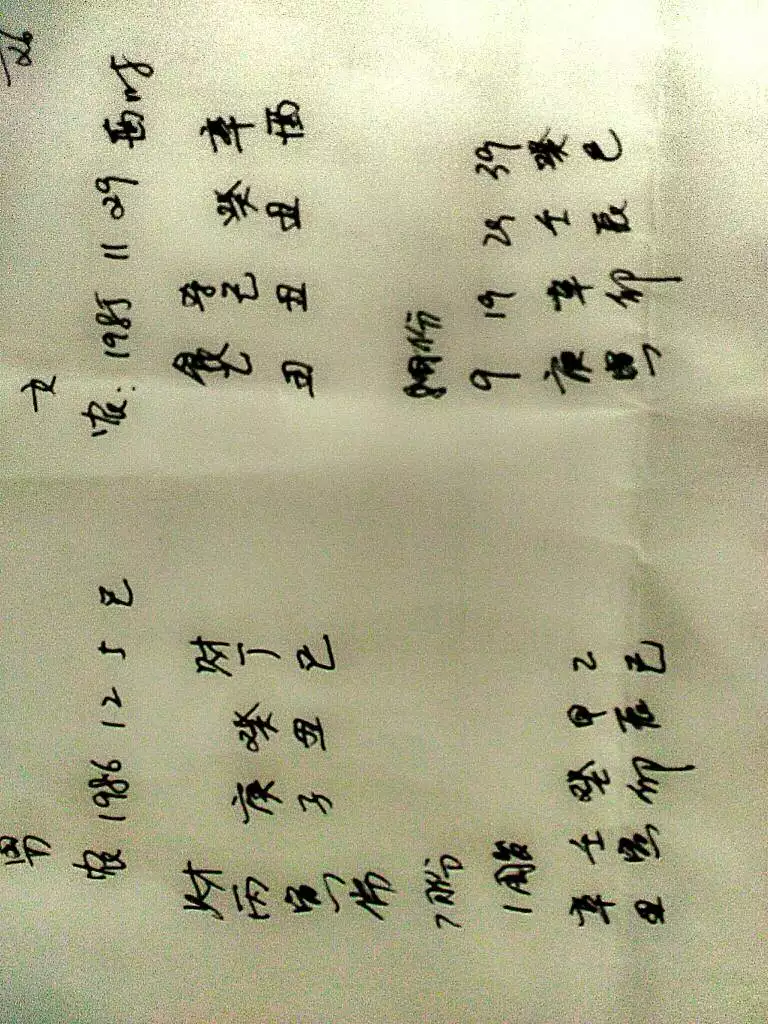 男
农 1986 12 5 巳
财 财
丙 庚 癸 丁
寅 子 丑 巳
伤
7月份
1周岁
辛 壬 癸 甲 乙
丑 寅 卯 辰 巳
女
农: 1985 11 29 酉时
食 杀
乙 己 癸 辛
丑 丑 丑 酉
9 19 29 39
庚 辛 壬 癸
寅 卯 辰 巳